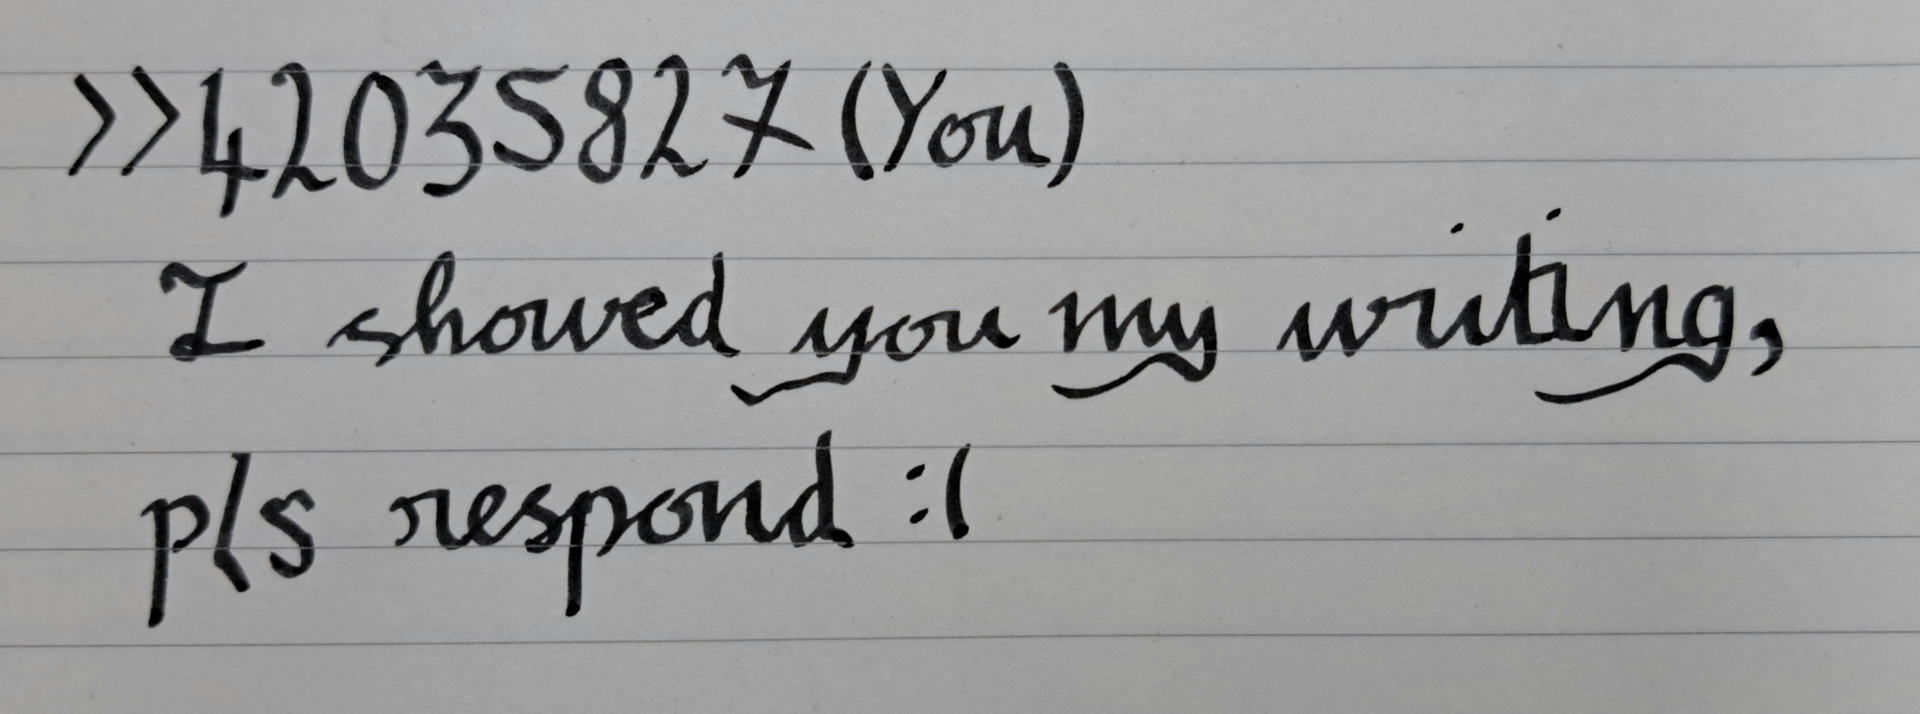 >>42035827 (You)
I showed you my writing,
pls respond :(